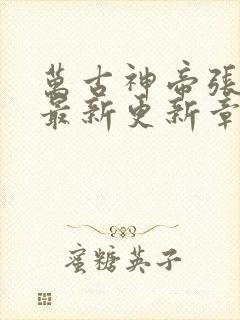 萬古神帝張
最新更新章
蜜糖英子